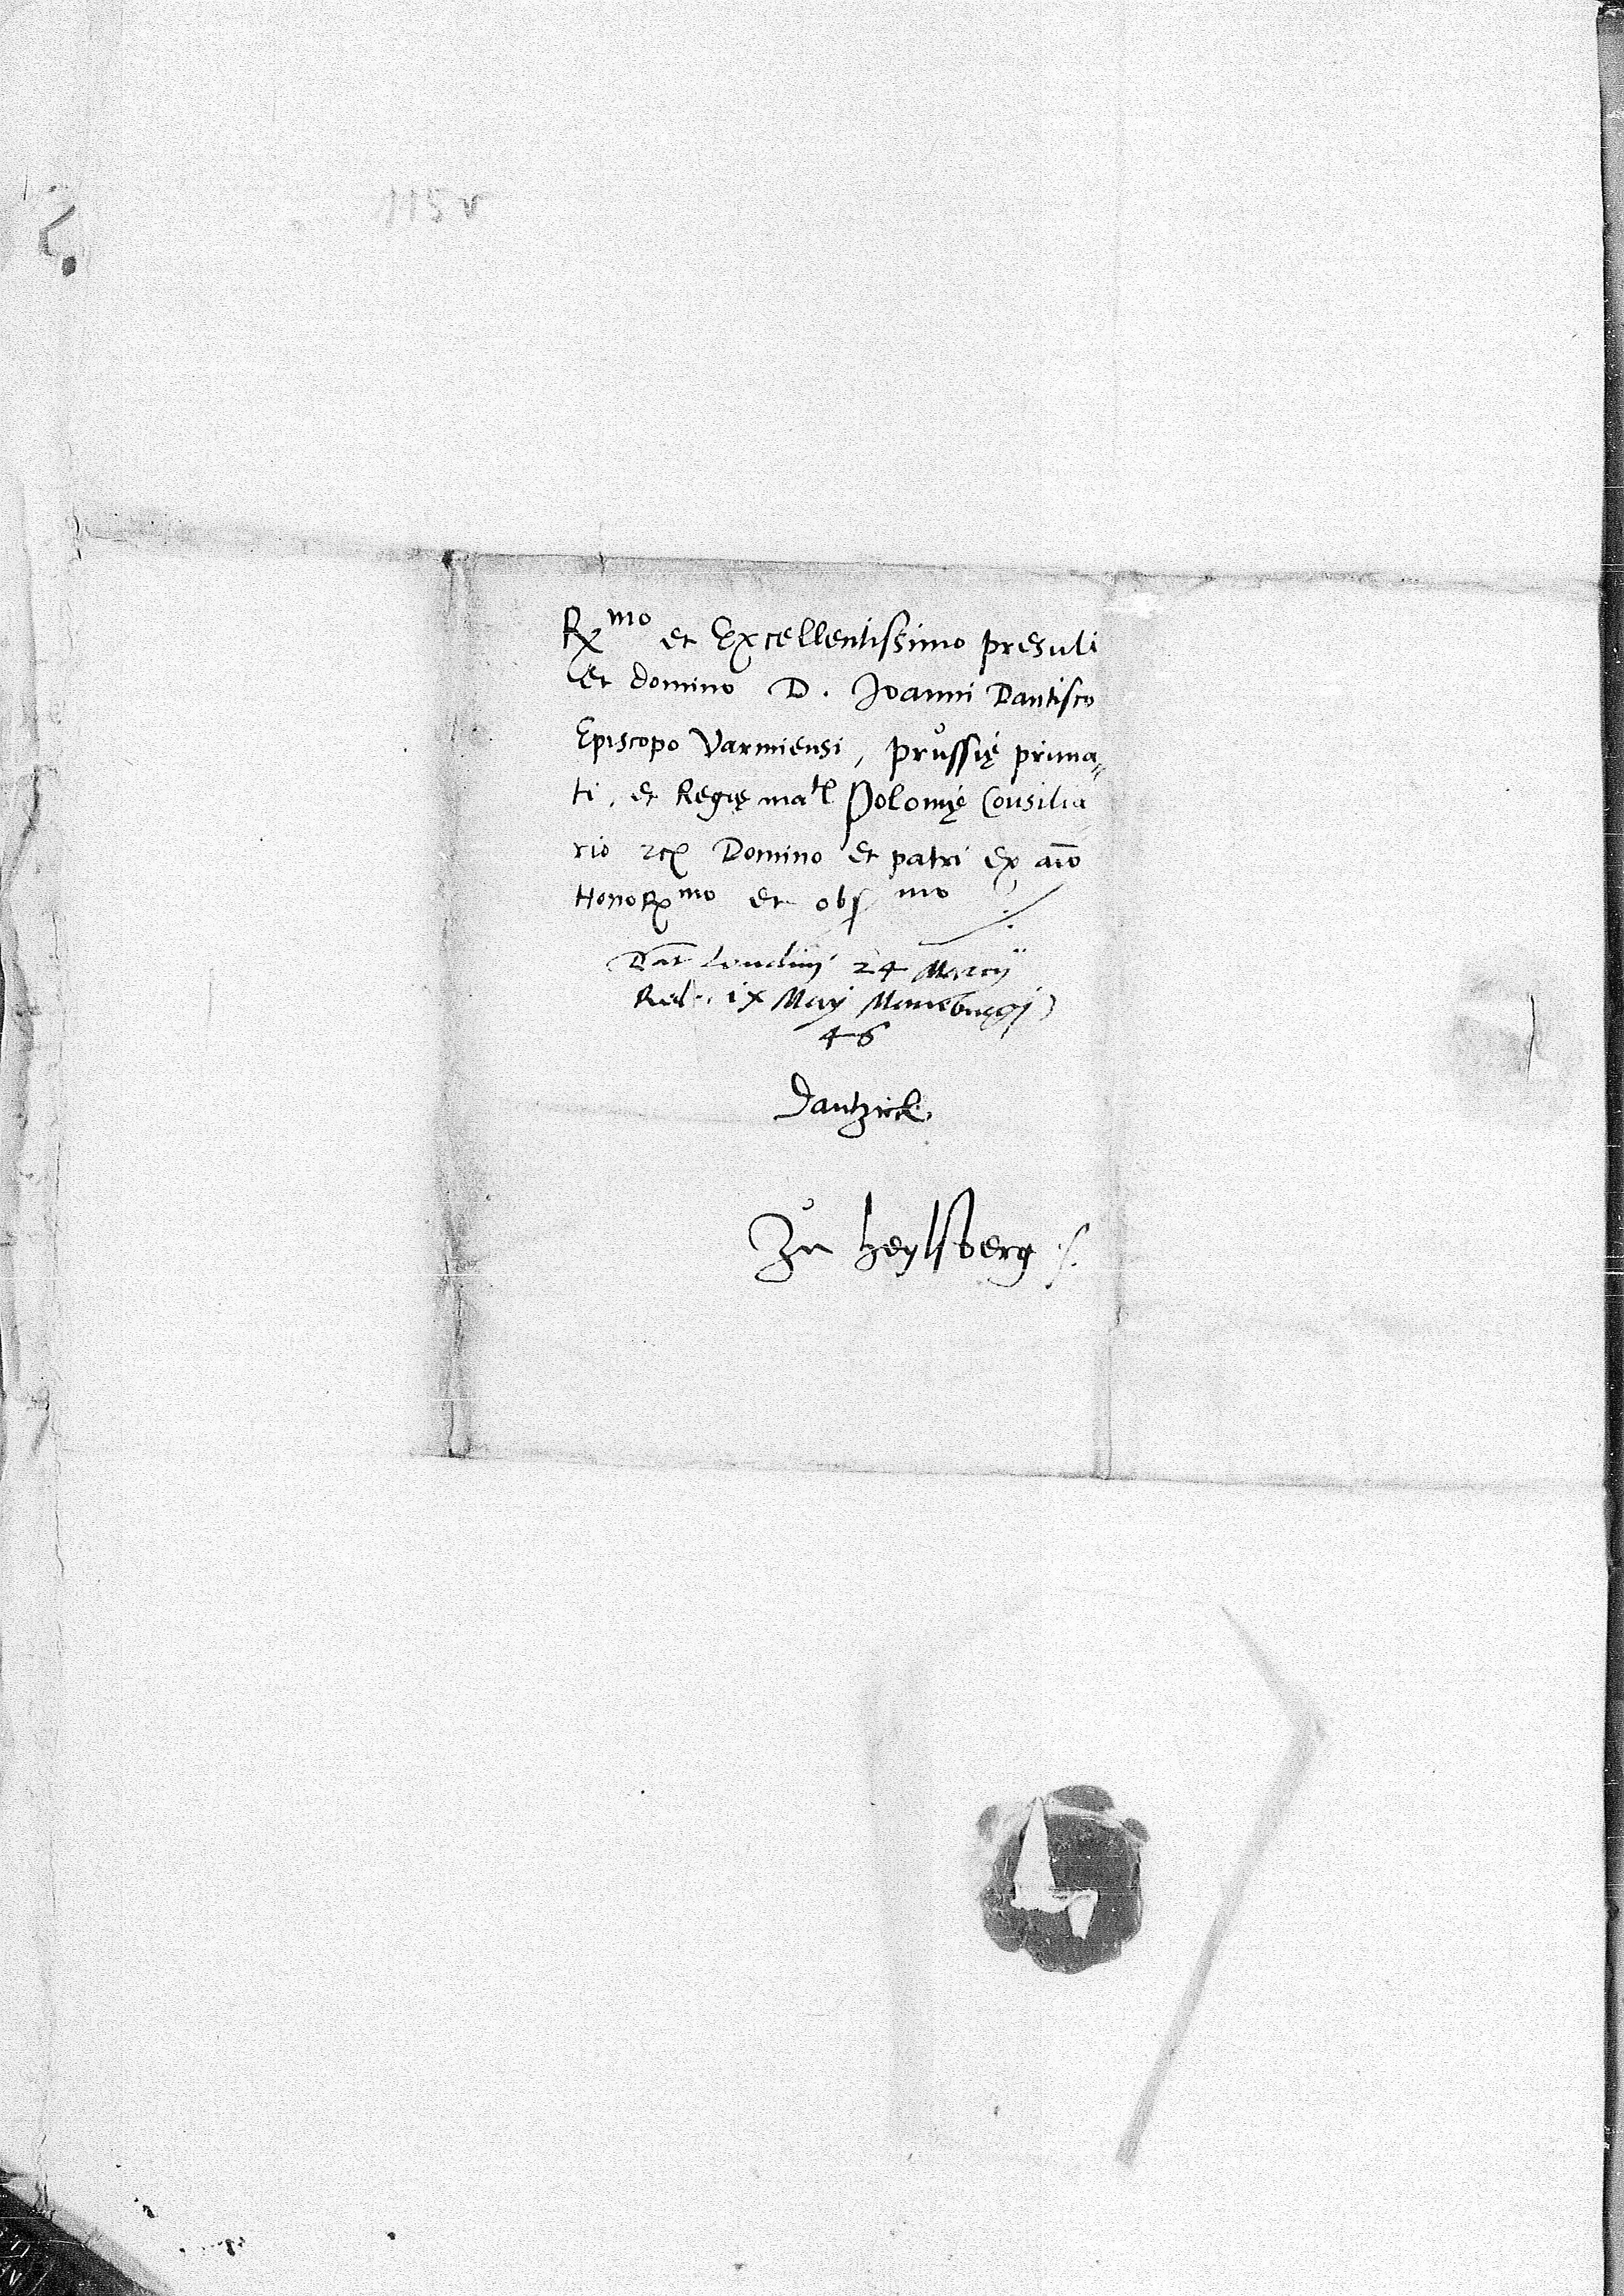 115 v
Rmo et Excellentissimo presuli
et domino D. Joanni Dantisco
Episcopo Varmiensi, průssię prima„
ti, et Regię matis Polonię Consilia
rio etc Domino et patri ex aīo
Honormo et obsmo
Dat Londinj 24 Marcij
Red. ix Maij
46
Dantzick
Zů heylsberg